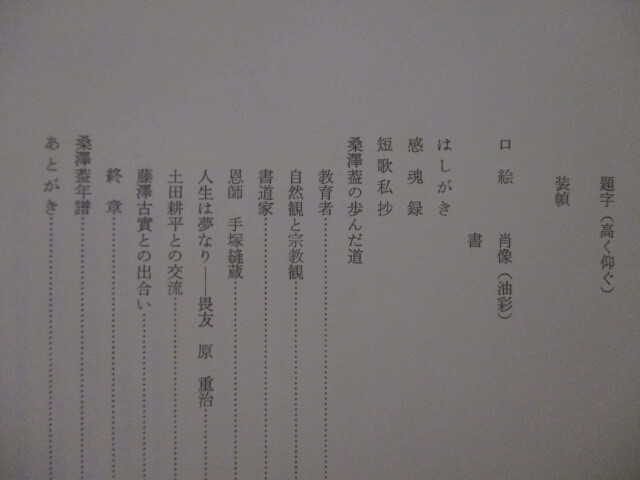 題字（高く仰ぐ）
装幀
口絵　肖像（油彩）
書
はしがき
感魂録
短歌私抄
桑澤蓋の歩んだ道
教育者
自然観と宗教観
書道家
恩師　手塚縫蔵
人生は夢なり——畏友　原　重治
土田耕平との交流
藤澤古實との出合い
終章
桑澤蓋年譜
あとがき